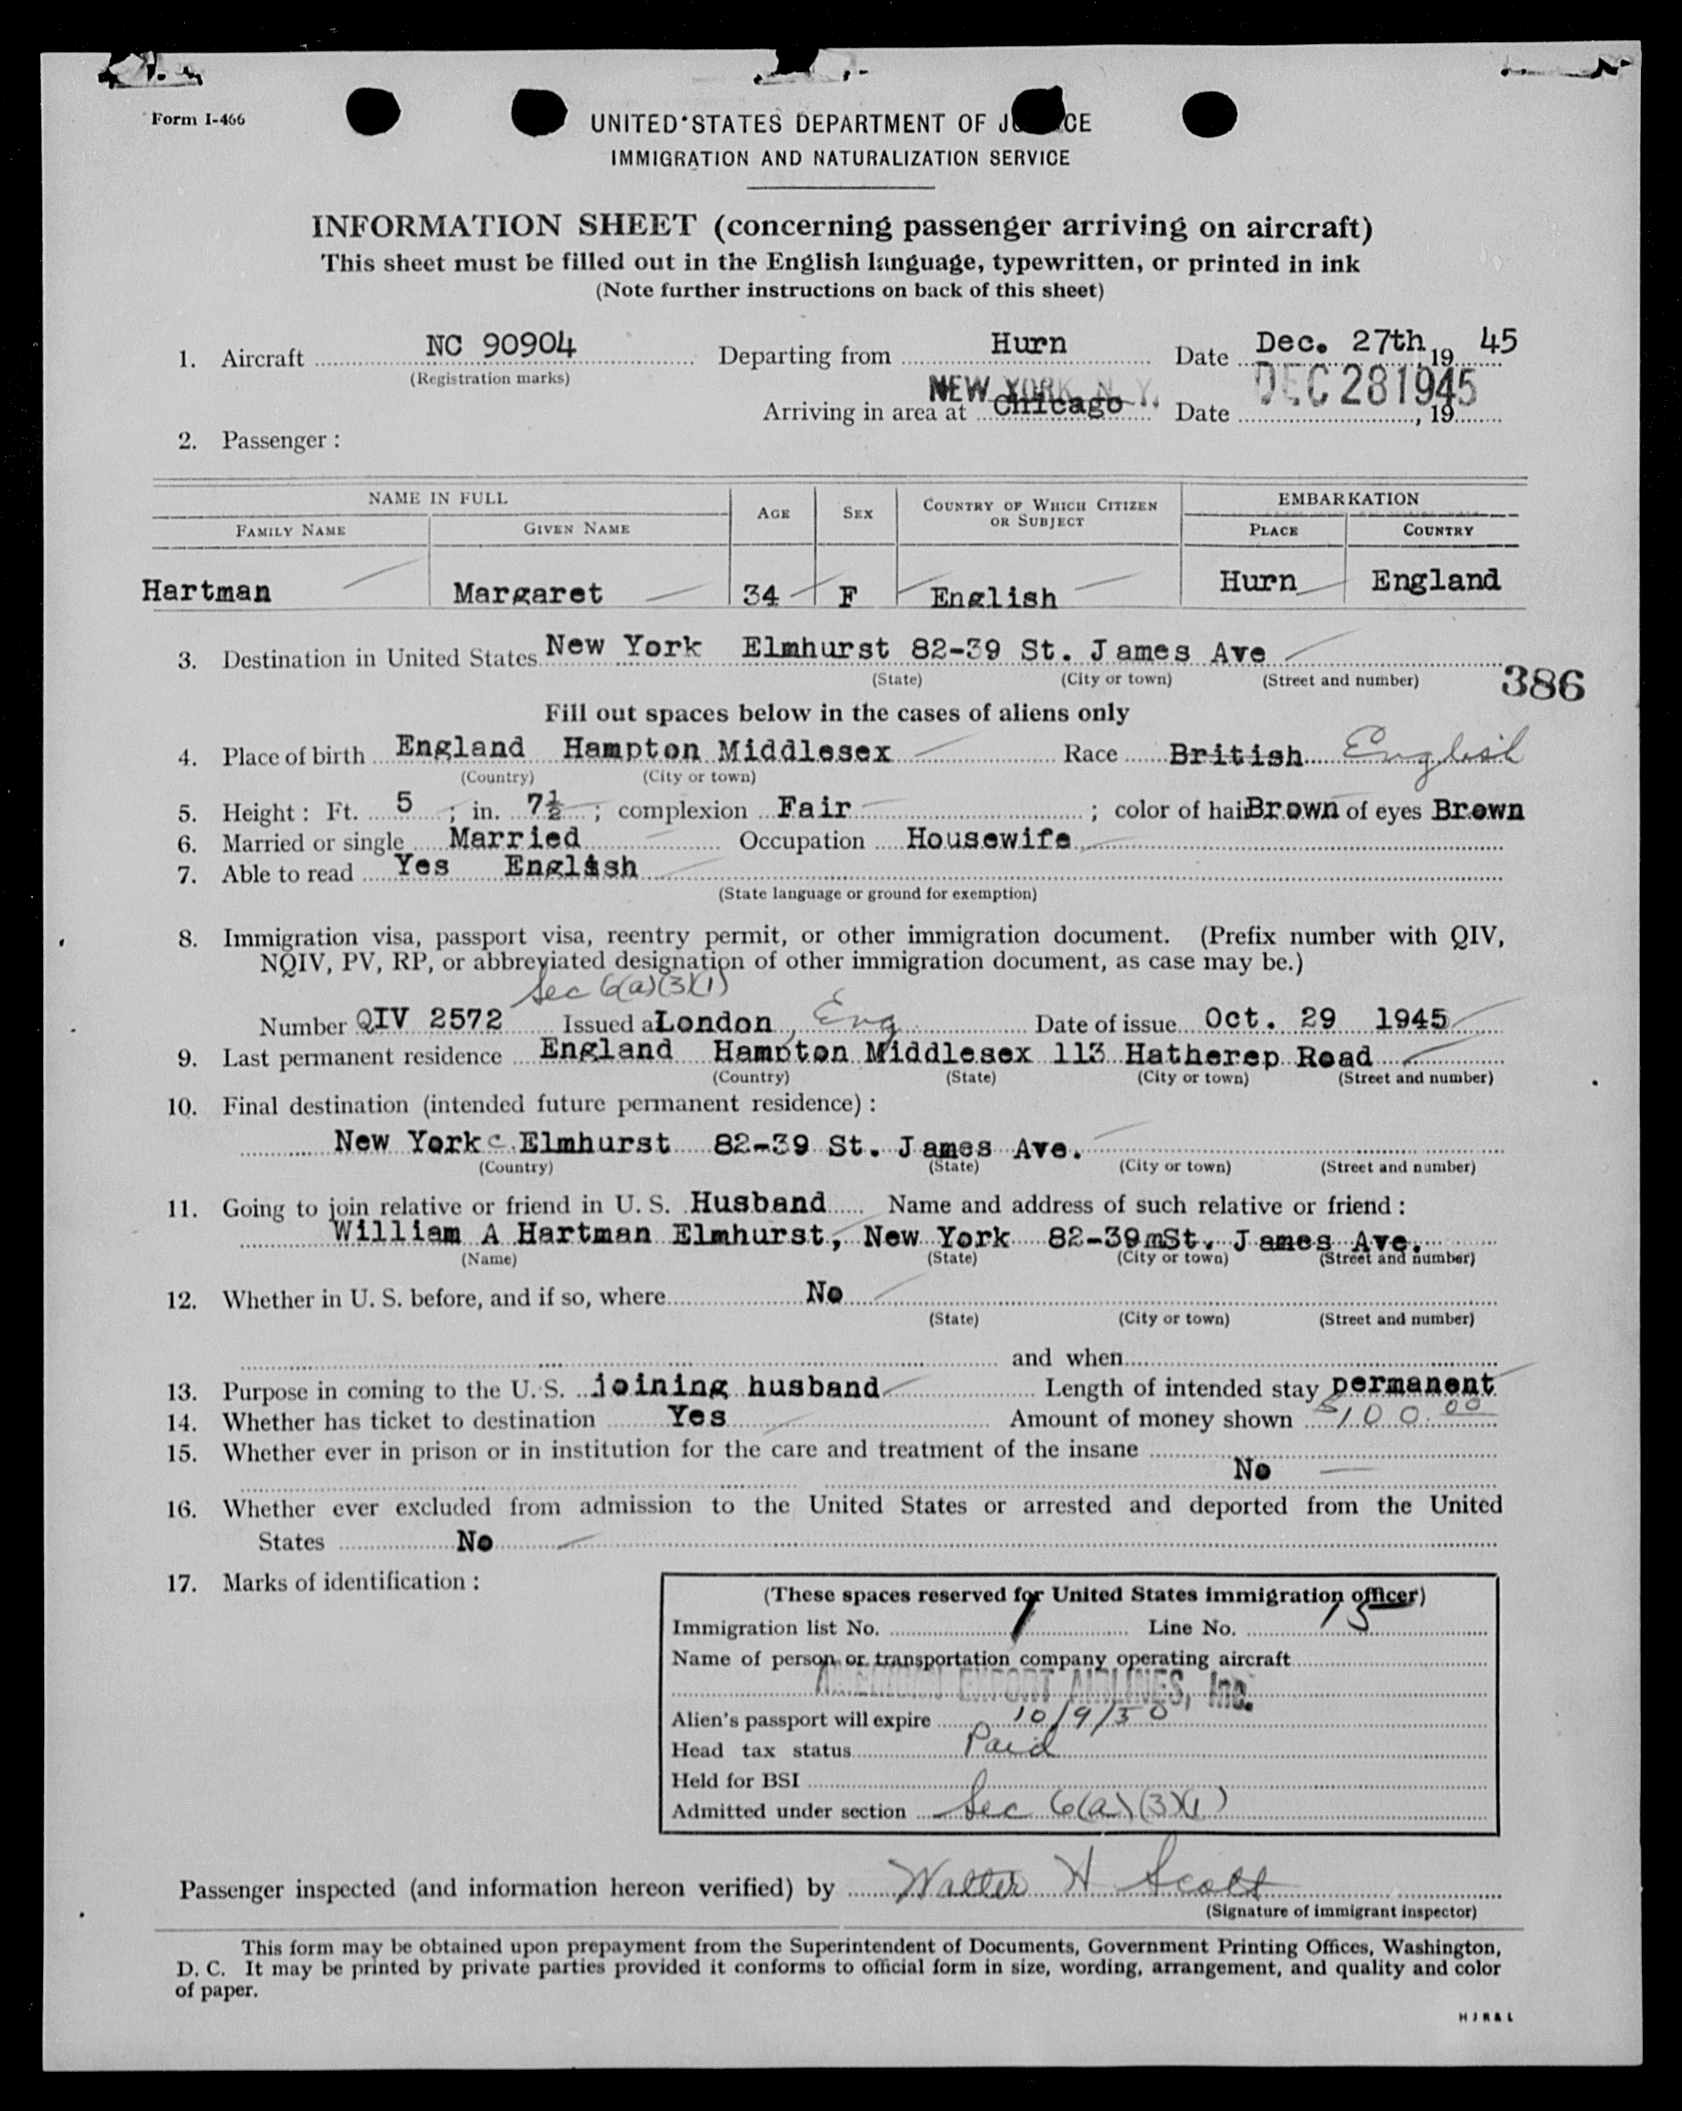 Form I-466
UNITED STATES DEPARTMENT OF J CE
IMMIGRATION AND NATURALIZATION SERVICE
INFORMATION SHEET (concerning passenger arriving on aircraft)
This sheet must be filled out in the English language, typewritten, or printed in ink
(Note further instructions on back of this sheet)
1. Aircraft NC 90904 Departing from Hurn Date Dec. 27th, 19 45
(Registration marks)
NEW YORK N. Y. DEC 28 1945
Arriving in area at Chicago Date , 19
2. Passenger :
NAME IN FULL AGE SEX COUNTRY OF WHICH CITIZEN OR SUBJECT EMBARKATION
FAMILY NAME GIVEN NAME PLACE COUNTRY
Hartman Margaret 34 F English Hurn England
3. Destination in United States New York Elmhurst 82-39 St. James Ave
(State) (City or town) (Street and number)
386
Fill out spaces below in the cases of aliens only
4. Place of birth England Hampton Middlesex Race British English
(Country) (City or town)
5. Height : Ft. 5 ; in. 7½ ; complexion Fair ; color of hair Brown of eyes Brown
6. Married or single Married Occupation Housewife
7. Able to read Yes English
(State language or ground for exemption)
8. Immigration visa, passport visa, reentry permit, or other immigration document. (Prefix number with QIV,
NQIV, PV, RP, or abbreviated designation of other immigration document, as case may be.)
Sec 6(a)(3)(1)
Number QIV 2572 Issued at London, Eng Date of issue Oct. 29 1945
9. Last permanent residence England Hampton Middlesex 113 Hatherep Road
(Country) (State) (City or town) (Street and number)
10. Final destination (intended future permanent residence) :
New York Elmhurst 82-39 St. James Ave.
(Country) (State) (City or town) (Street and number)
11. Going to join relative or friend in U. S. Husband Name and address of such relative or friend :
William A Hartman Elmhurst, New York 82-39mSt. James Ave.
(Name) (State) (City or town) (Street and number)
12. Whether in U. S. before, and if so, where No
(State) (City or town) (Street and number)
and when
13. Purpose in coming to the U. S. joining husband Length of intended stay permanent
14. Whether has ticket to destination Yes Amount of money shown $100.00
15. Whether ever in prison or in institution for the care and treatment of the insane
No
16. Whether ever excluded from admission to the United States or arrested and deported from the United
States No
17. Marks of identification :
(These spaces reserved for United States immigration officer)
Immigration list No. 1 Line No. 15
Name of person or transportation company operating aircraft
AMERICAN EXPORT AIRLINES, Inc.
Alien's passport will expire 10/9/50
Head tax status Paid
Held for BSI
Admitted under section Sec 6(a)(3)(1)
Passenger inspected (and information hereon verified) by Walter H Scott
(Signature of immigrant inspector)
This form may be obtained upon prepayment from the Superintendent of Documents, Government Printing Offices, Washington,
D. C. It may be printed by private parties provided it conforms to official form in size, wording, arrangement, and quality and color
of paper.
HJR&L